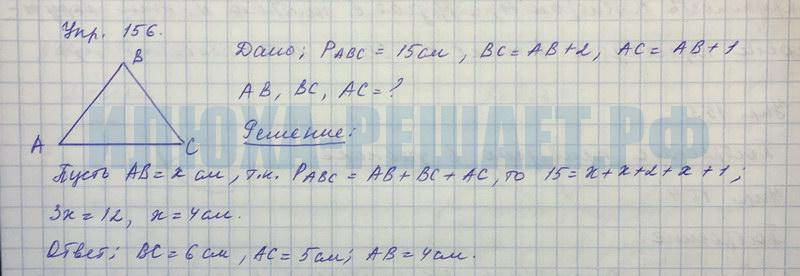 Упр. 156.
B
A
C
Дано; PABC = 15 см, BC = AB+2, AC = AB+1
AB, BC, AC = ?
ИЛЮХА-РЕШАЕТ.РФ
Решение:
Пусть AB = x см, т.к. PABC = AB + BC + AC, то 15 = x + x + 2 + x + 1;
3x = 12, x = 4 см.
Ответ; BC = 6 см, AC = 5 см; AB = 4 см.